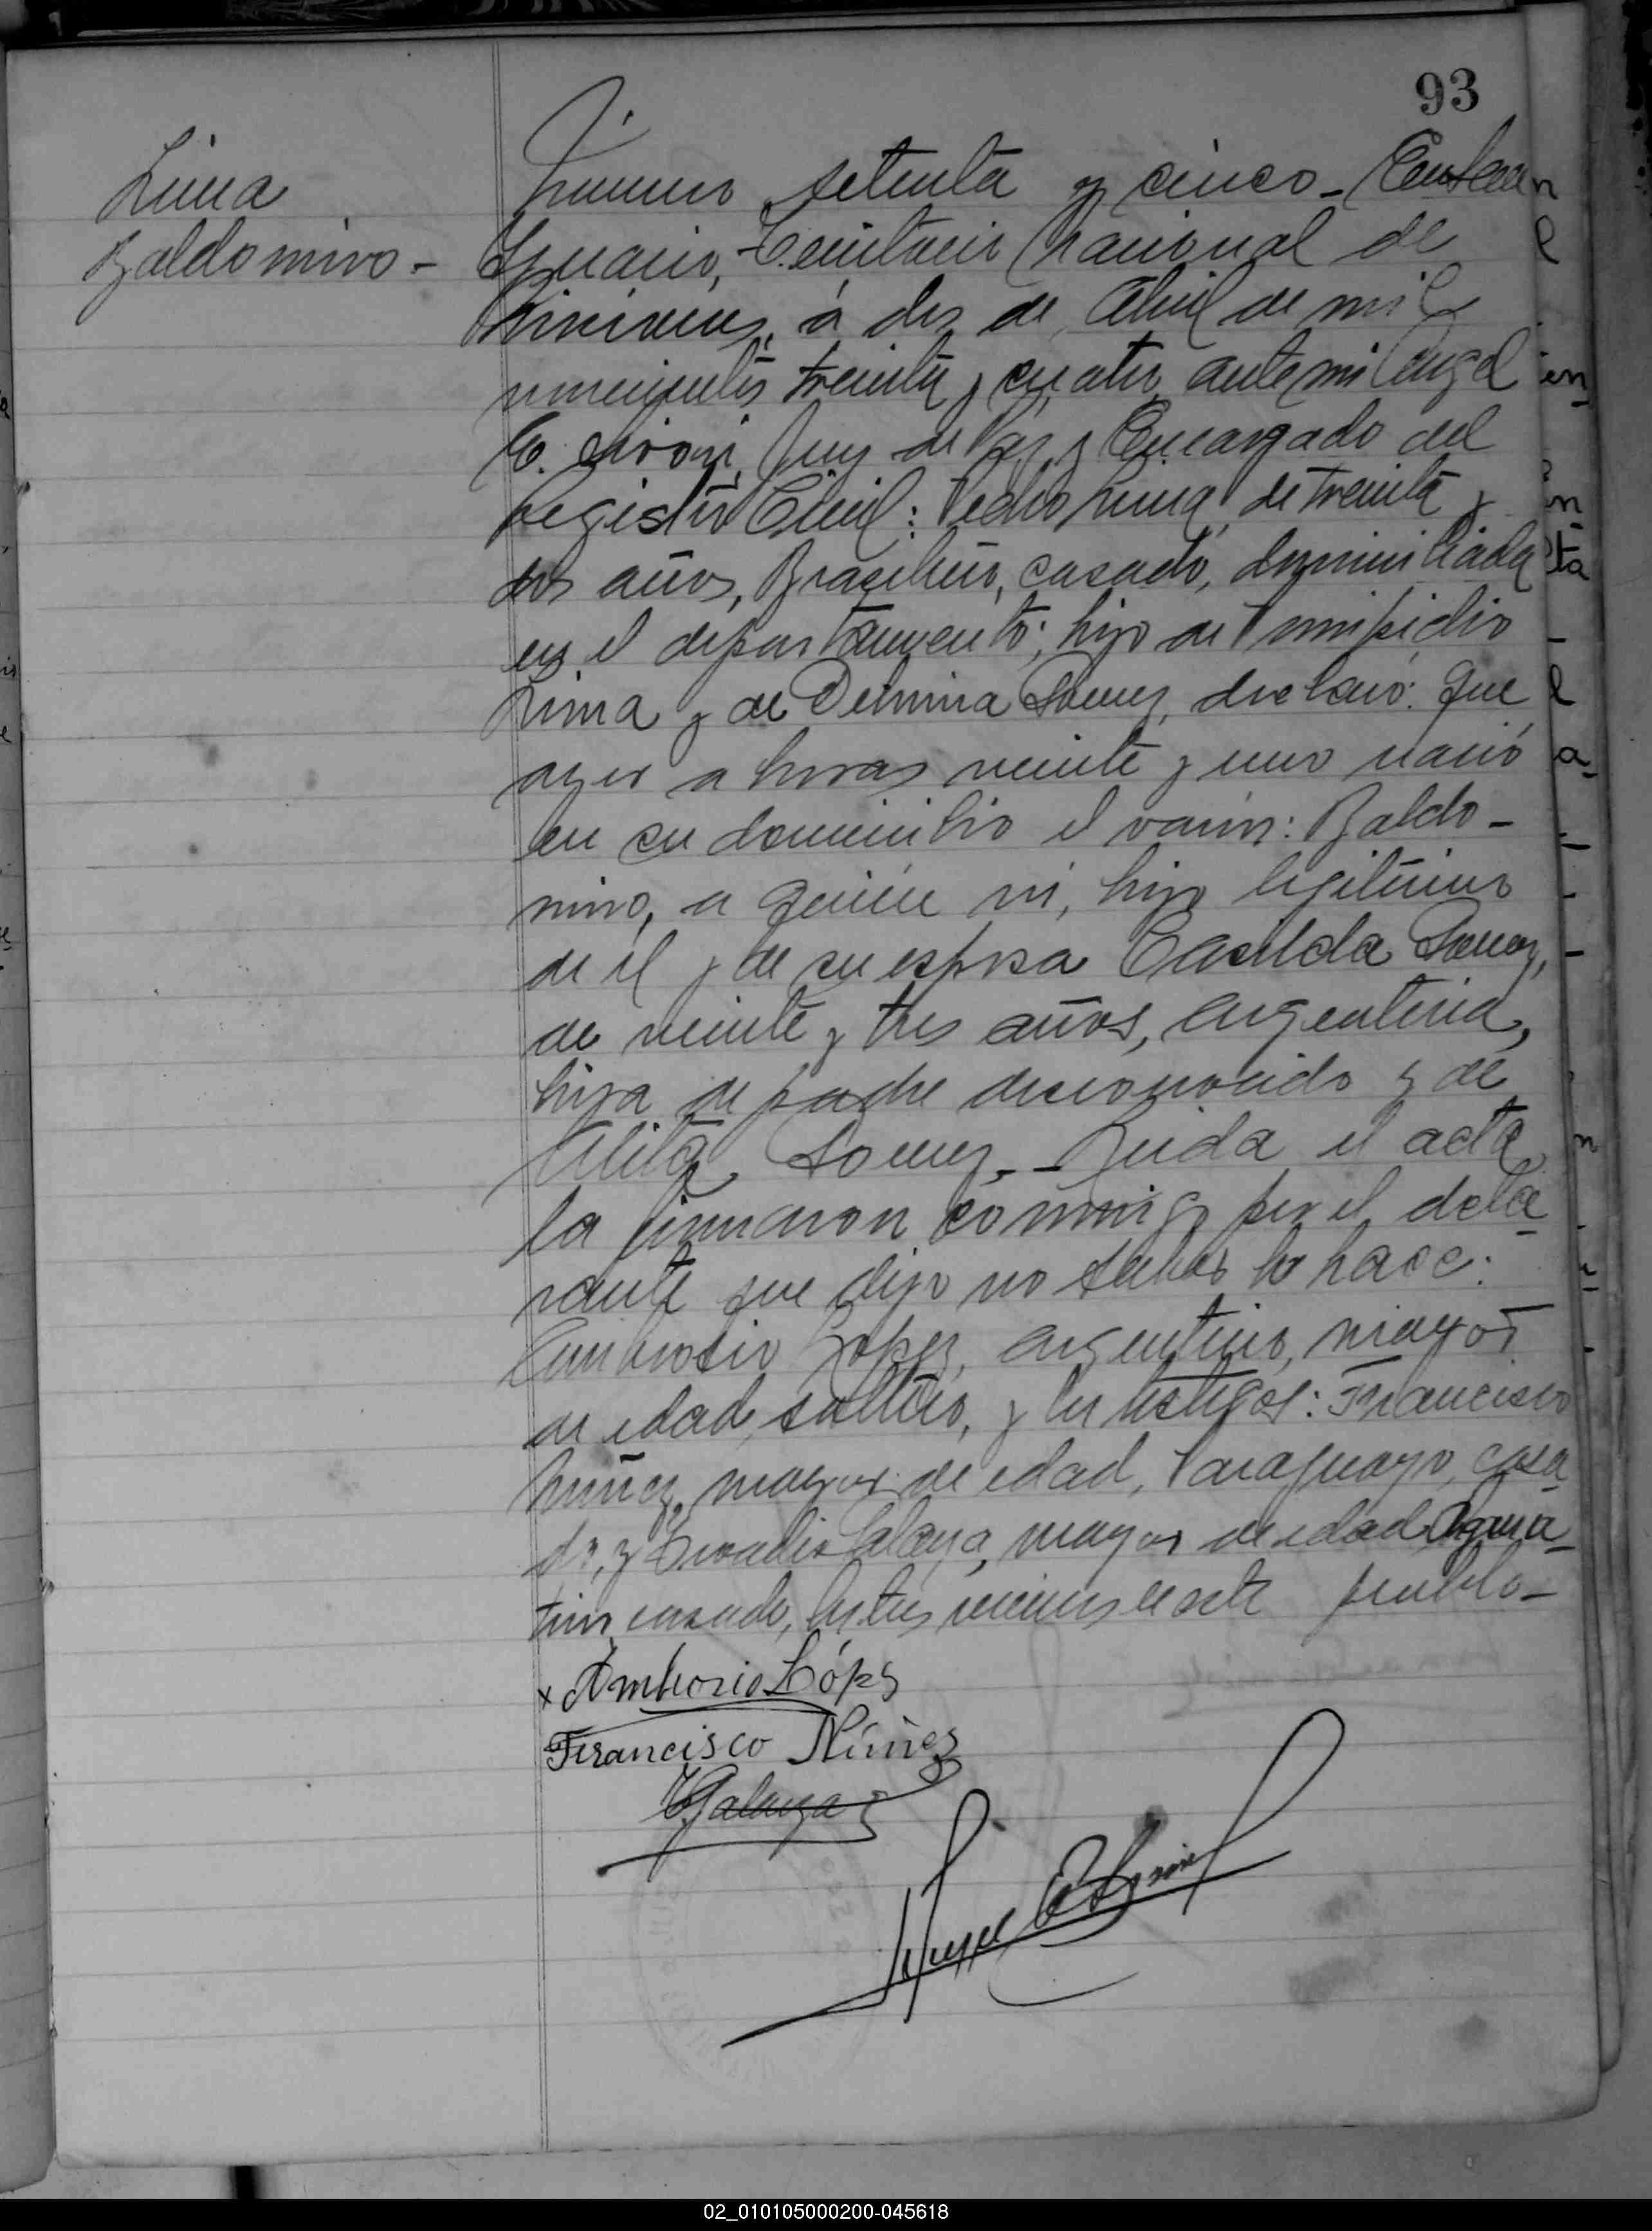 93
Lima
Baldomino -
Número setenta y cinco - En San
Ignacio, Territorio Nacional de
Misiones, á dos de Abril de mil
novecientos treinta y cuatro, ante mi Angel
C. Juez de Paz y Encargado del
Registro Civil: Pedro Lima, de treinta y
dos años, Brasilero, casado, domiciliado
en el departamento; hijo de
Lima y de Gomez, declaró: que
ayer a horas veinte y uno nació
en su domicilio el varón: Baldo-
mino, a quién ví, hijo legítimo
de el y de su esposa Casilda Gomez,
de veinte y tres años, argentina,
hija de padre desconocido y de
Gomez. - Leida el acta
la firmaron conmigo por el decla-
rante que dijo no saber lo hace:
Ambrosio Lopez, argentino, mayor
de edad, soltero, y los testigos: Francisco
Nuñez, mayor de edad, Paraguayo, casa-
do, y Galarza, mayor de edad,
casado, estos vecinos de este pueblo -
x Ambrosio López
Francisco Núñez
Galarza
Angel
02_010105000200-045618